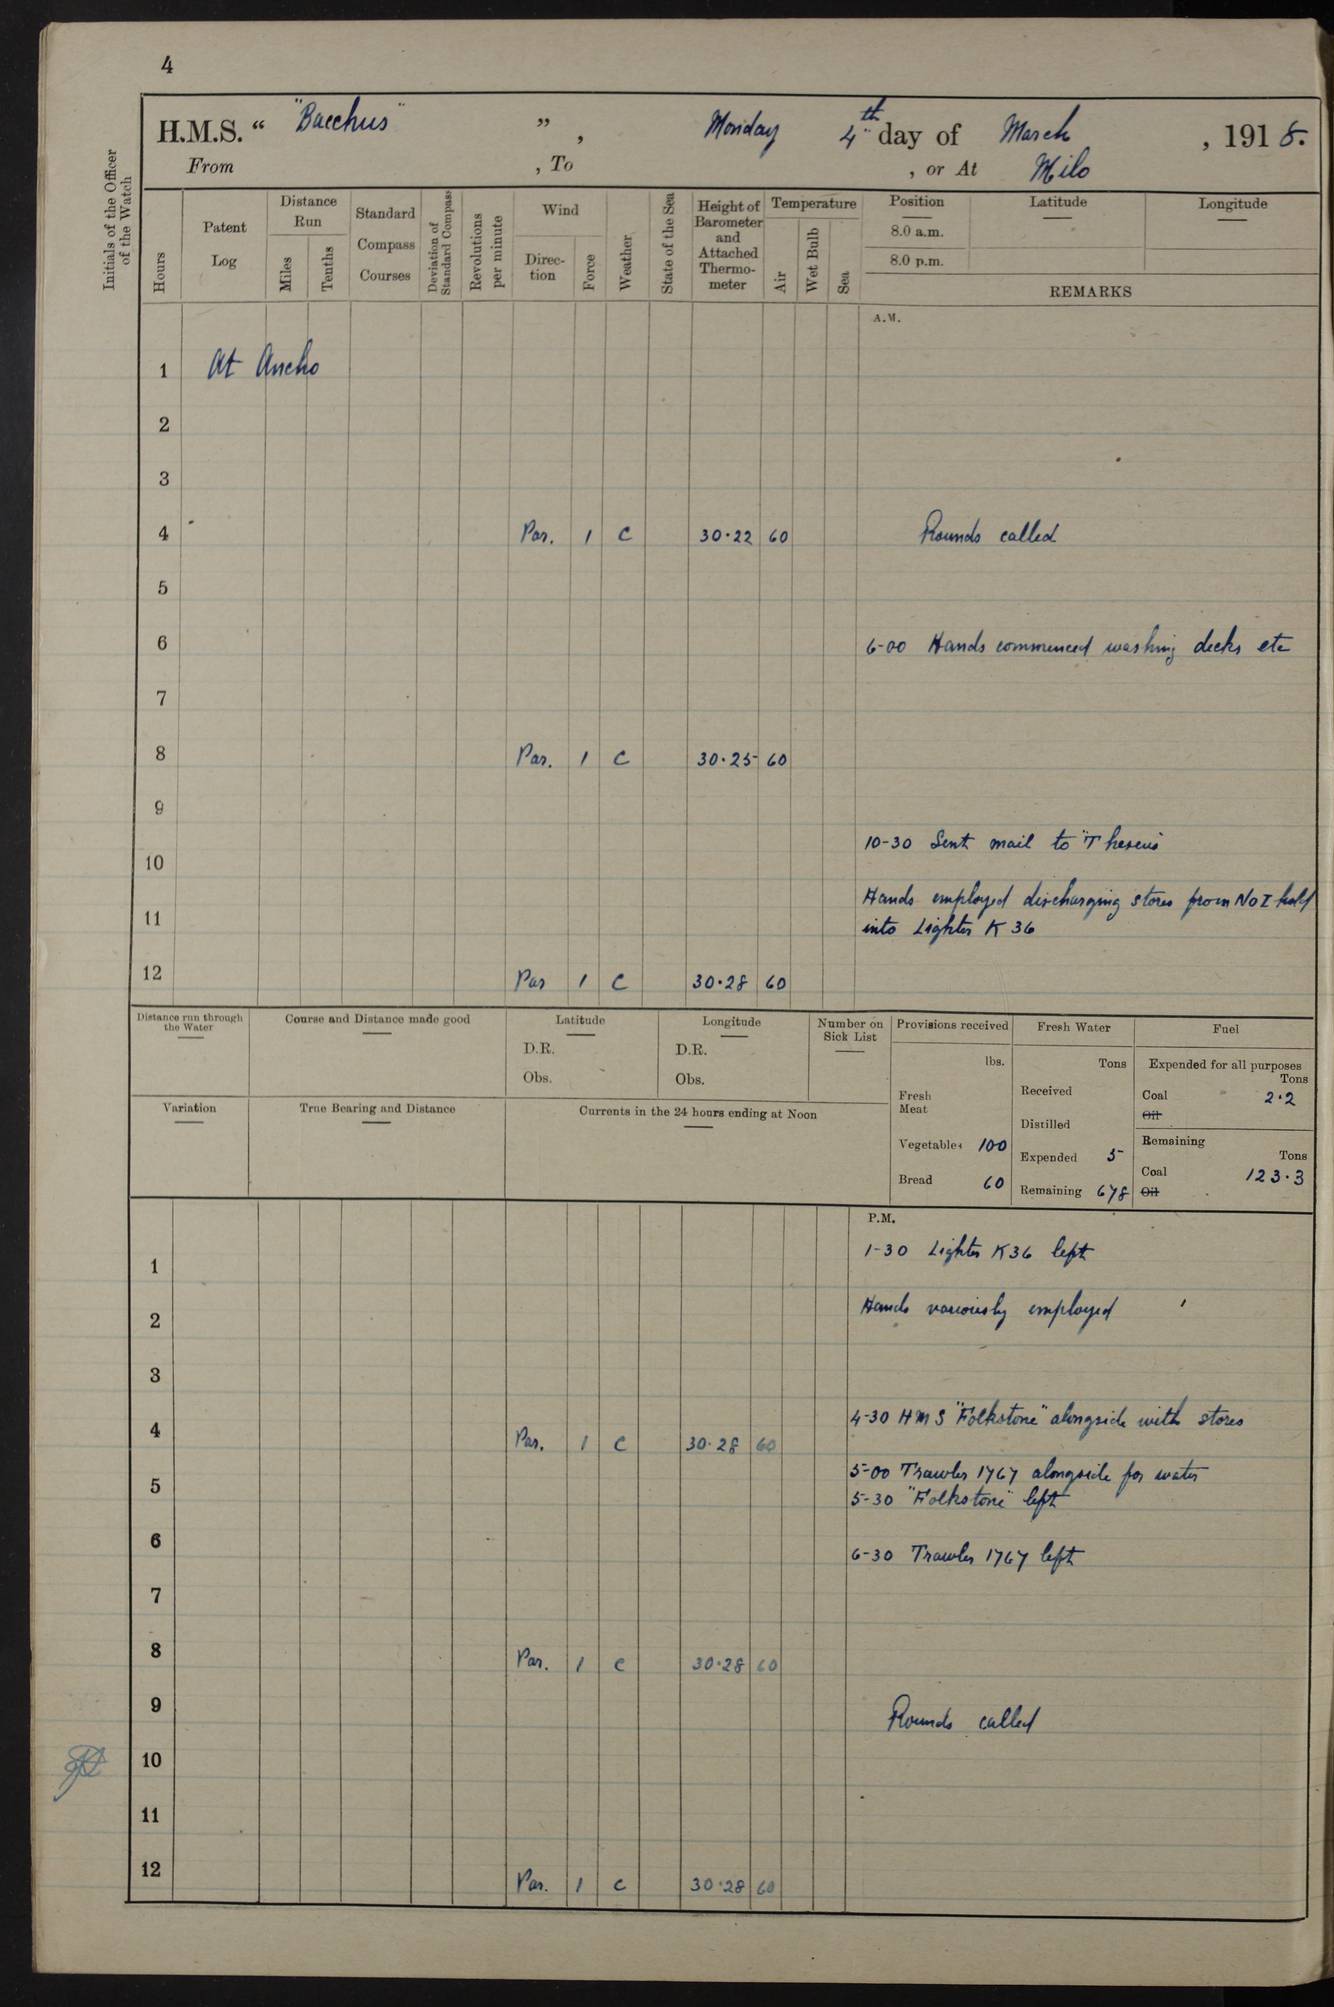 4
H.M.S. “ "Bacchus" ” , Monday 4th day of March , 1918.
From , To , or At Milo
Initials of the Officer of the Watch
Hours
Patent Log
Distance Run
Miles
Tenths
Standard Compass Courses
Deviation of Standard Compass
Revolutions per minute
Wind
Direc-tion
Force
Weather
State of the Sea
Height of Barometer and Attached Thermo-meter
Temperature
Air
Wet Bulb
Sea
Position Latitude Longitude
8.0 a.m.
8.0 p.m.
REMARKS
A.M.
1 At Ancho
2
3
4 Par. 1 c 30.22 60 Rounds called
5
6 6-00 Hands commenced washing decks etc
7
8 Par. 1 c 30.25 60
9
10-30 Sent mail to "Theseus"
10
Hands employed discharging stores from No I hold
11 into Lighter K 36
12 Par 1 c 30.28 60
Distance run through the Water
Course and Distance made good
Latitude
D.R.
Obs.
Longitude
D.R.
Obs.
Number on Sick List
Provisions received
lbs.
Fresh Meat
Vegetables 100
Bread 60
Fresh Water
Tons
Received
Distilled
Expended 5
Remaining 678
Fuel
Expended for all purposes
Tons
Coal 2.2
Oil
Remaining
Tons
Coal 123.3
Oil
Variation
True Bearing and Distance
Currents in the 24 hours ending at Noon
P.M.
1-30 Lighter K36 left
1
Hands variously employed
2
3
4-30 H M S "Folkstone" alongside with stores
4 Par. 1 c 30.28 60
5-00 Trawler 1767 alongside for water
5
5-30 "Folkstone" left
6
6-30 Trawler 1767 left
7
8 Par. 1 c 30.28 60
9 Rounds called
10
11
12 Par. 1 c 30.28 60